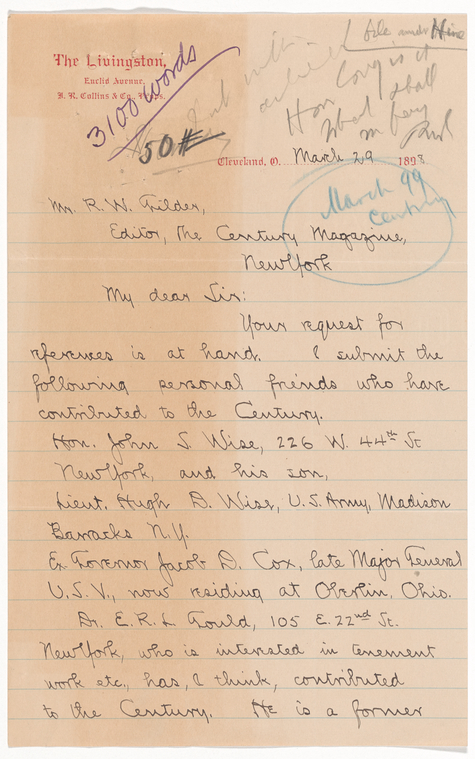 The Livingston,
Euclid Avenue.
3100 words
50#
How long is it
What shall
pay
Cleveland, O. March 29 1898
March 99
Century
Mr. R. W. Gilder,
Editor, The Century Magazine,
New York
My dear Sir:
Your request for
references is at hand. I submit the
following personal friends who have
contributed to the Century.
Hon. John S. Wise, 226 W. 44th St
New York, and his son,
Lieut. Hugh D. Wise, U.S. Army, Madison
Barracks N.Y.
Ex Governor Jacob D. Cox, late Major General
U.S.V., now residing at Oberlin, Ohio.
Dr. E.R.L. Gould, 105 E. 22nd St.
New York, who is interested in tenement
work etc., has, I think, contributed
to the Century. He is a former